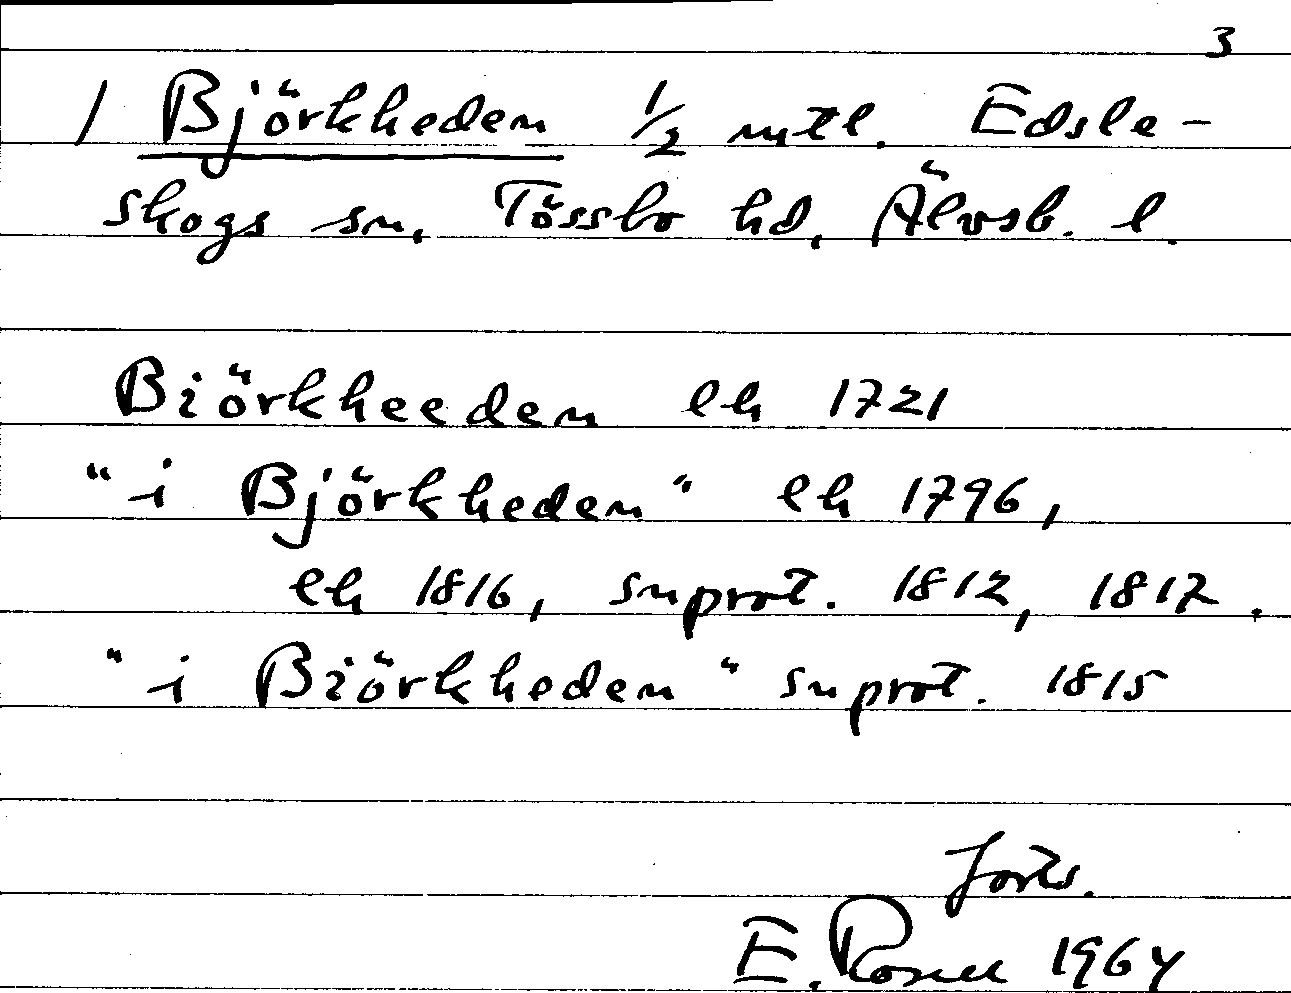 3
/ Björkheden ½ mtl. Edsle-
skogs sn, Tössbo hd, Älvsb. l.
Biörkheeden lh 1721
"i Björkheden" lh 1796,
lh 1816, snprot. 1812, 1817.
"i Biörkheden" snprot. 1815
forts.
E. 1964